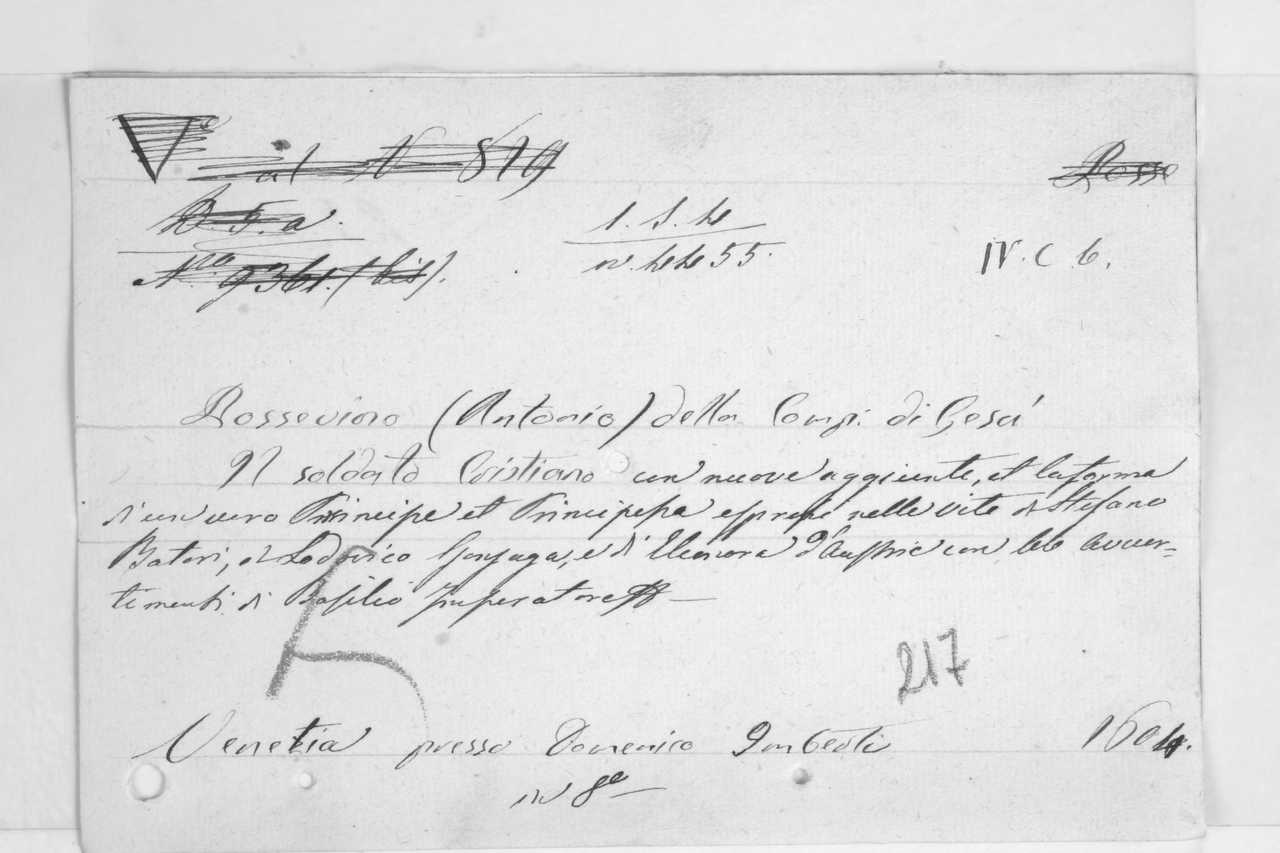 V.e al N 819
Posse
D. 5. a.
1. S. 4
N.ro 9361. (bis).
n. 4455.
IV. C. 6.
Possevino (Antonio) della Comp. di Gesù
Il soldato Cristiano con nuove aggiunte, et la forma
di un vero Principe et Principessa espresse nelle vite di Stefano
Batori, di Lodovico Gonzaga, e di Eleonora d'Austria con li avver-
timenti di Basilio Imperatore
217
Venetia presso Domenico Imberti 1604.
in 8.o